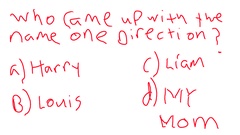 Who came up with the
name one Direction?
a) Harry
c) Liam
B) Louis
d) MY
Mom